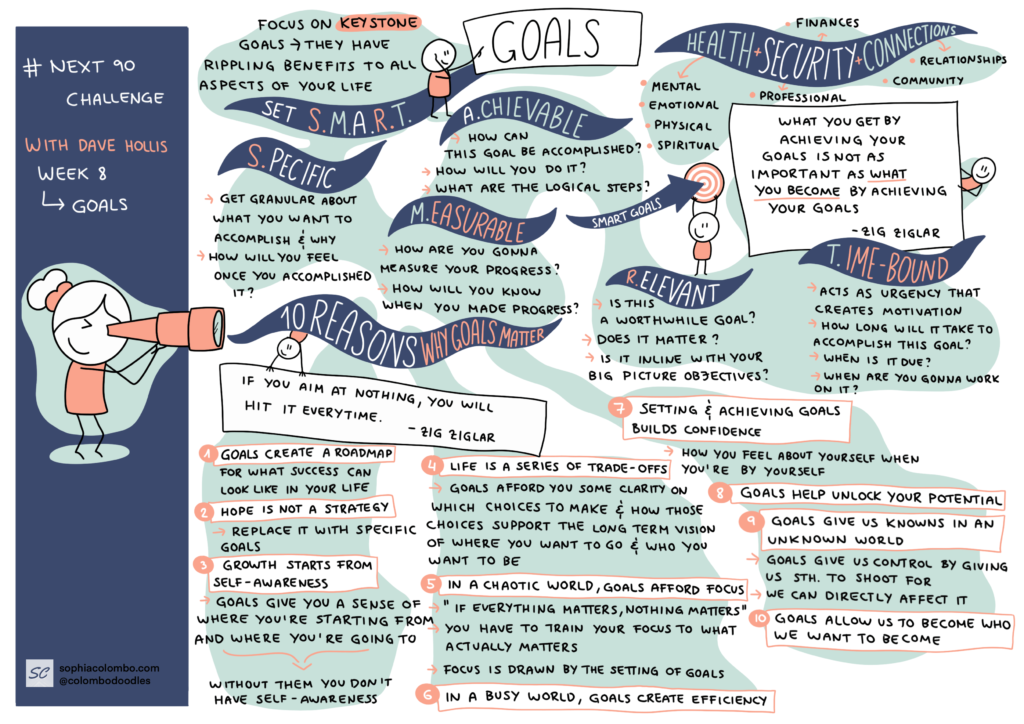 # NEXT 90
CHALLENGE
WITH DAVE HOLLIS
WEEK 8
↳ GOALS
FOCUS ON KEYSTONE
GOALS → THEY HAVE
RIPPLING BENEFITS TO ALL
ASPECTS OF YOUR LIFE
GOALS
HEALTH + SECURITY + CONNECTIONS
FINANCES
RELATIONSHIPS
COMMUNITY
PROFESSIONAL
MENTAL
EMOTIONAL
PHYSICAL
SPIRITUAL
SET S.M.A.R.T.
S.PECIFIC
→ GET GRANULAR ABOUT
WHAT YOU WANT TO
ACCOMPLISH & WHY
→ HOW WILL YOU FEEL
ONCE YOU ACCOMPLISHED
IT?
A.CHIEVABLE
→ HOW CAN
THIS GOAL BE ACCOMPLISHED?
→ HOW WILL YOU DO IT?
→ WHAT ARE THE LOGICAL STEPS?
M.EASURABLE
→ HOW ARE YOU GONNA
MEASURE YOUR PROGRESS?
→ HOW WILL YOU KNOW
WHEN YOU MADE PROGRESS?
SMART GOALS
WHAT YOU GET BY
ACHIEVING YOUR
GOALS IS NOT AS
IMPORTANT AS WHAT
YOU BECOME BY ACHIEVING
YOUR GOALS
- ZIG ZIGLAR
R.ELEVANT
→ IS THIS
A WORTHWHILE GOAL?
→ DOES IT MATTER?
→ IS IT INLINE WITH YOUR
BIG PICTURE OBJECTIVES?
T.IME-BOUND
→ ACTS AS URGENCY THAT
CREATES MOTIVATION
→ HOW LONG WILL IT TAKE TO
ACCOMPLISH THIS GOAL?
→ WHEN IS IT DUE?
→ WHEN ARE YOU GONNA WORK
ON IT?
10 REASONS WHY GOALS MATTER
IF YOU AIM AT NOTHING, YOU WILL
HIT IT EVERYTIME.
- ZIG ZIGLAR
1 GOALS CREATE A ROADMAP
FOR WHAT SUCCESS CAN
LOOK LIKE IN YOUR LIFE
2 HOPE IS NOT A STRATEGY
→ REPLACE IT WITH SPECIFIC
GOALS
3 GROWTH STARTS FROM
SELF-AWARENESS
→ GOALS GIVE YOU A SENSE OF
WHERE YOU'RE STARTING FROM
AND WHERE YOU'RE GOING TO
WITHOUT THEM YOU DON'T
HAVE SELF-AWARENESS
4 LIFE IS A SERIES OF TRADE-OFFS
→ GOALS AFFORD YOU SOME CLARITY ON
WHICH CHOICES TO MAKE & HOW THOSE
CHOICES SUPPORT THE LONG TERM VISION
OF WHERE YOU WANT TO GO & WHO YOU
WANT TO BE
5 IN A CHAOTIC WORLD, GOALS AFFORD FOCUS
→ "IF EVERYTHING MATTERS, NOTHING MATTERS"
→ YOU HAVE TO TRAIN YOUR FOCUS TO WHAT
ACTUALLY MATTERS
→ FOCUS IS DRAWN BY THE SETTING OF GOALS
6 IN A BUSY WORLD, GOALS CREATE EFFICIENCY
7 SETTING & ACHIEVING GOALS
BUILDS CONFIDENCE
→ HOW YOU FEEL ABOUT YOURSELF WHEN
YOU'RE BY YOURSELF
8 GOALS HELP UNLOCK YOUR POTENTIAL
9 GOALS GIVE US KNOWNS IN AN
UNKNOWN WORLD
→ GOALS GIVE US CONTROL BY GIVING
US STH. TO SHOOT FOR
→ WE CAN DIRECTLY AFFECT IT
10 GOALS ALLOW US TO BECOME WHO
WE WANT TO BECOME
SC
sophiacolombo.com
@colombodoodles